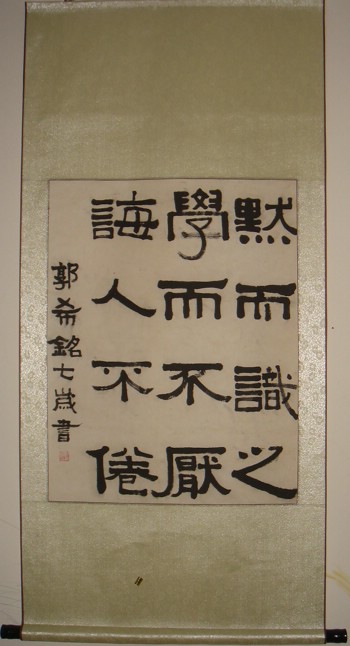 默而識之
學而不厭
誨人不倦
郭希銘七歲書